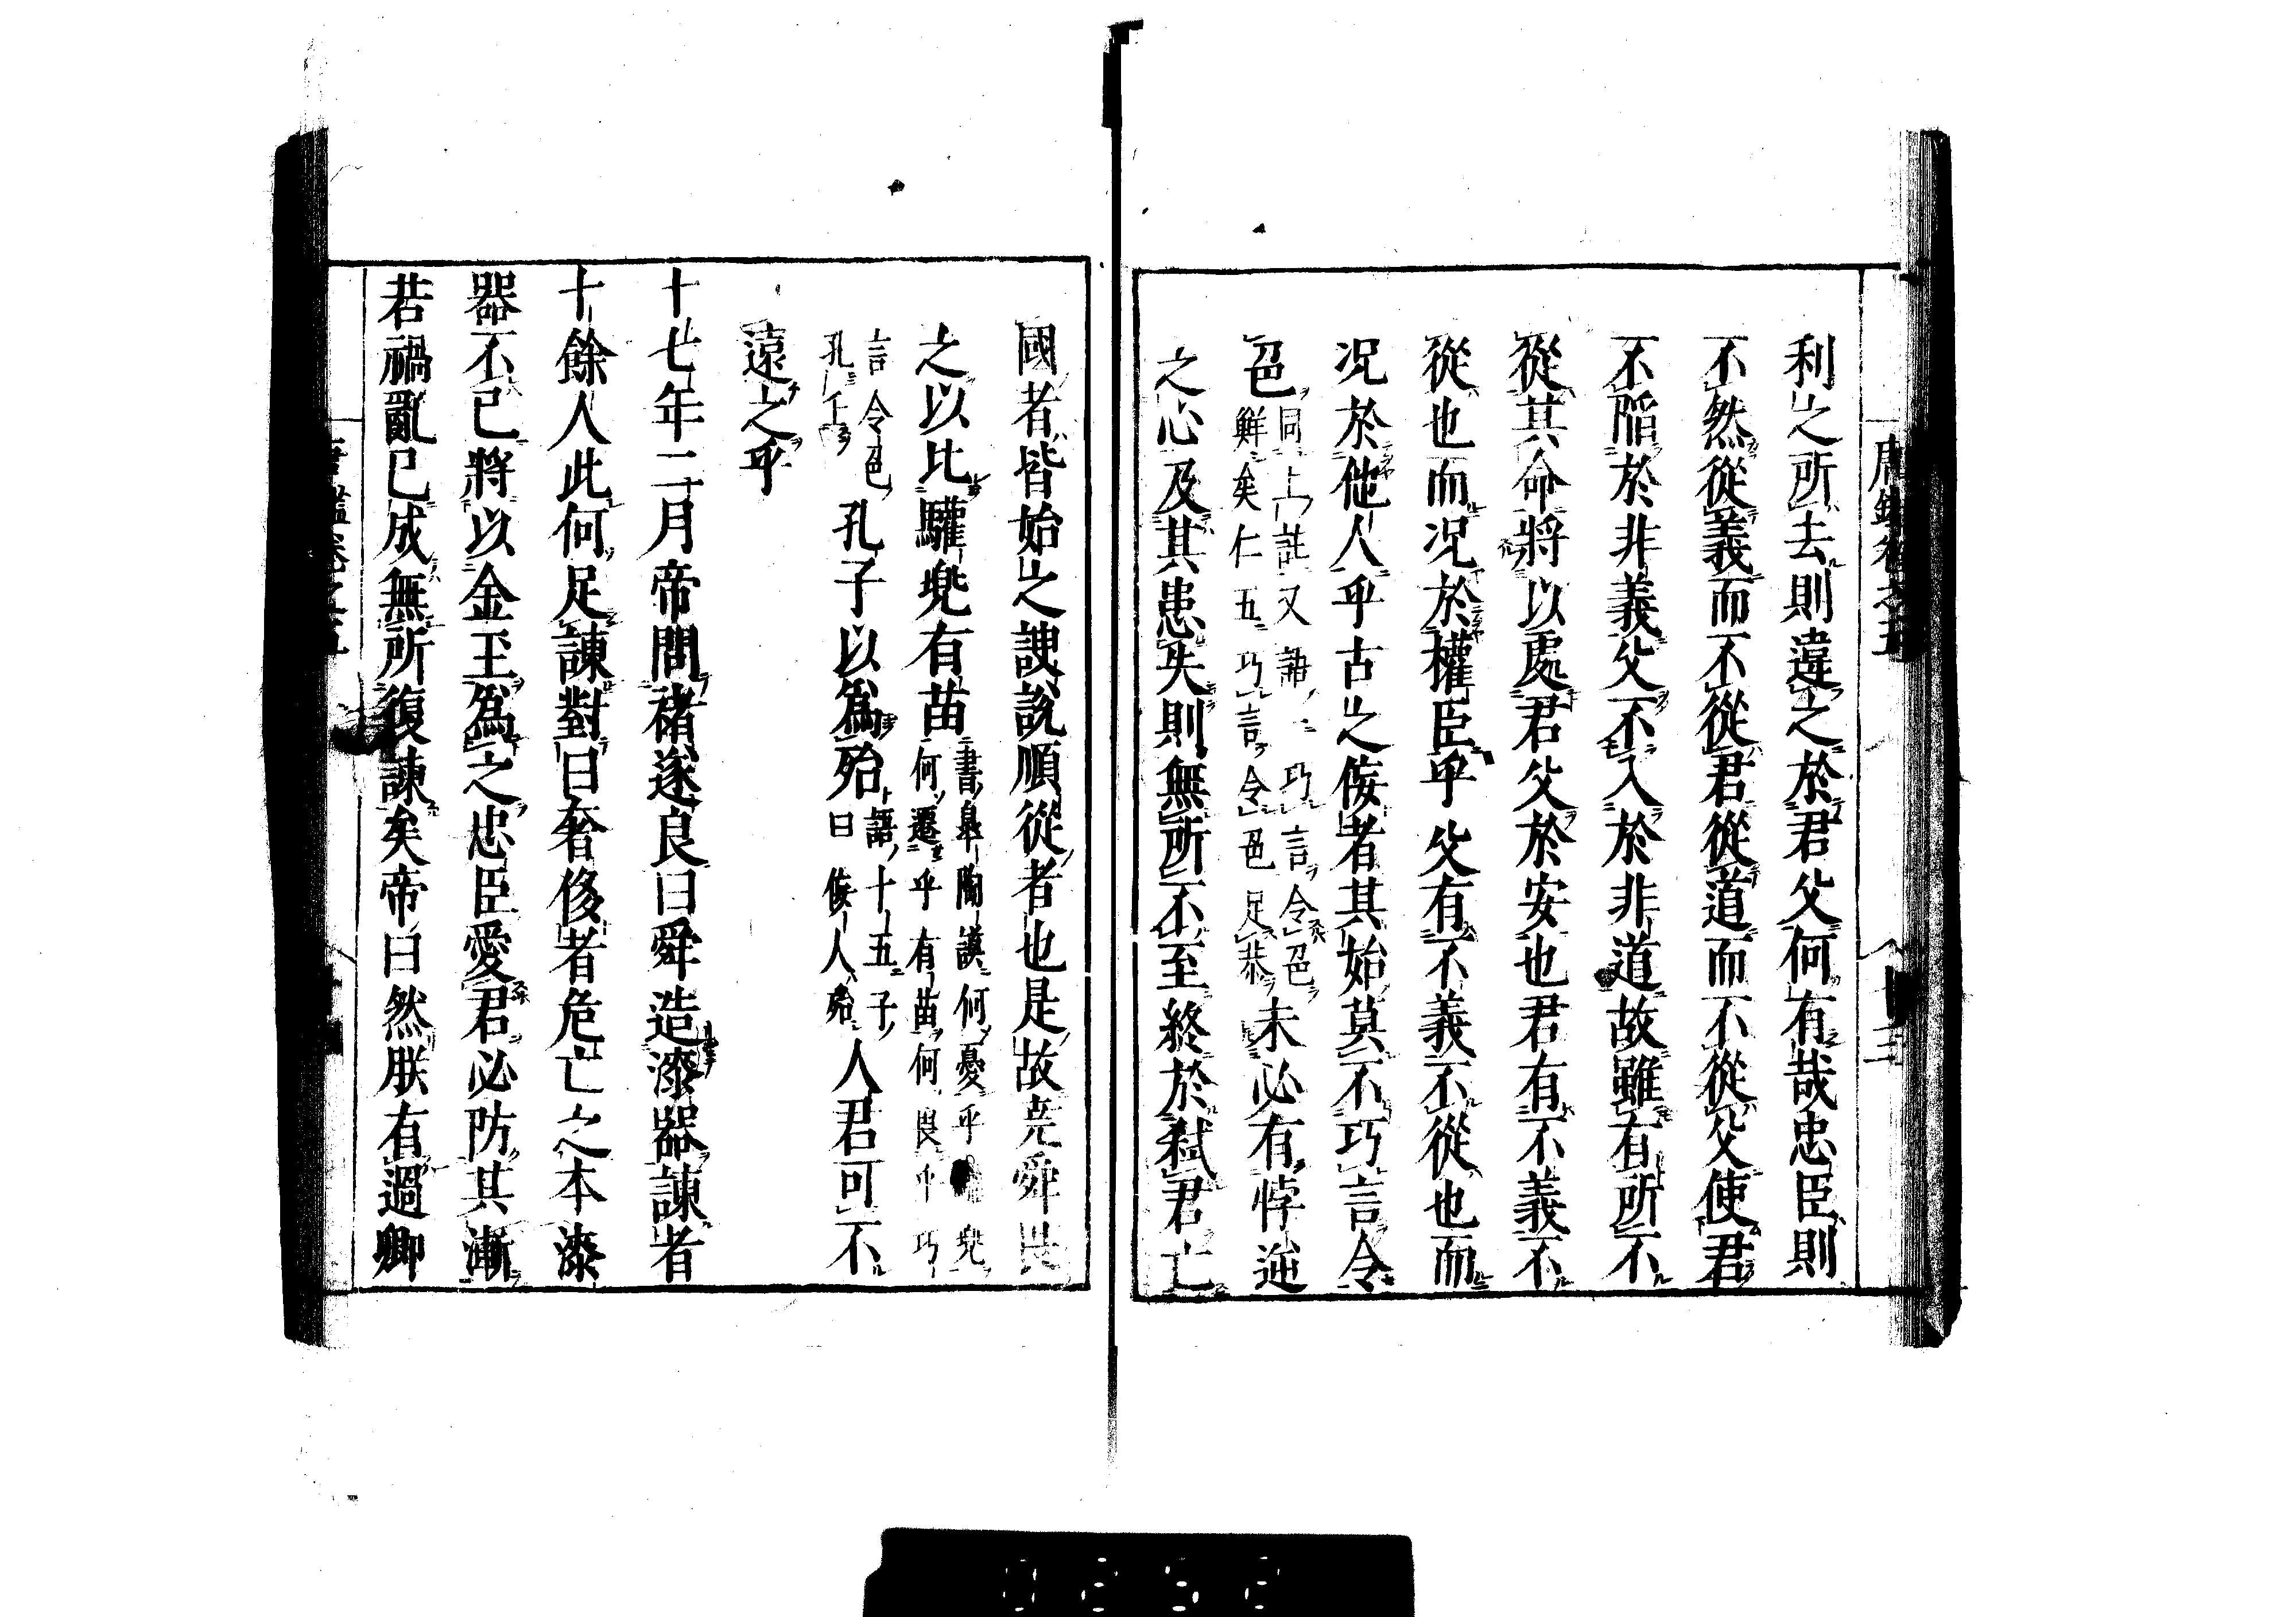 利之所去則違之於君父何有哉忠臣則
不然從義而不從君從道而不從父使君
不陷於非義父不入於非道故雖有所不
從其命將以處君父於安也君有不義不
從也而况於權臣乎父有不義不從也而
况於他人乎古之佞者其始莫不巧言令
色同上註又語一巧言令色鮮矣仁五巧言令色足恭未必有悖逆
之心及其患失則無所不至終於弑君亡
國者皆始之諛説順從者也是故堯舜畏
之以比驩兜有苗書皐陶謨何憂乎驩兜何遷乎有苗何畏乎巧
言令色孔壬孔子以爲殆語十五子曰佞人殆人君可不
遠之乎
十七年二月帝問褚遂良曰舜造漆器諫者
十餘人此何足諫對曰奢侈者危亡之本漆
器不已將以金玉爲之忠臣愛君必防其漸
若禍亂已成無所復諫矣帝曰然朕有過卿
唐鑑卷之五
0252